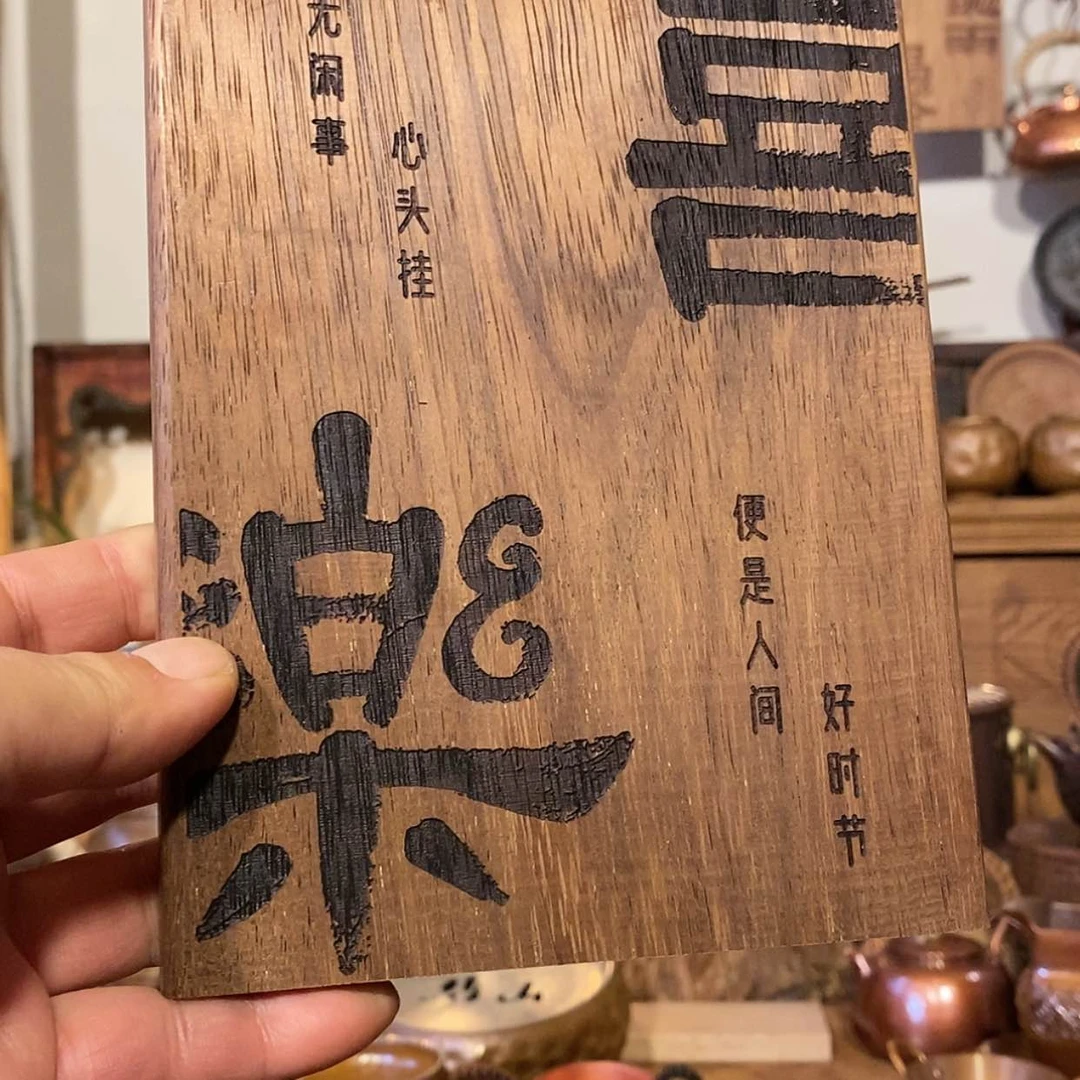 无闲事
心头挂
樂
便是人间
好时节